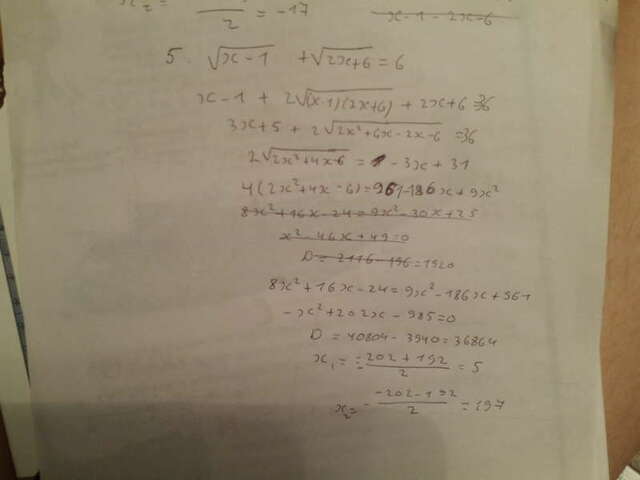 x₂ = ─── / 2 = -17
x-1-2x=6
5. √x-1 + √2x+6 = 6
x-1 + 2√(x-1)(2x+6) + 2x+6 = 36
3x+5 + 2√2x²+6x-2x-6 = 36
2√2x²+4x-6 = -3x+31
4(2x²+4x-6)=961-186x+9x²
8x²+16x-24=9x²-30x+25
x²-46x+49=0
D=2116-196=1920
8x²+16x-24=9x²-186x+961
-x²+202x-985=0
D=40804-3940=36864
x₁= -202+192 / 2 = 5
x₂= - -202-192 / 2 = 197